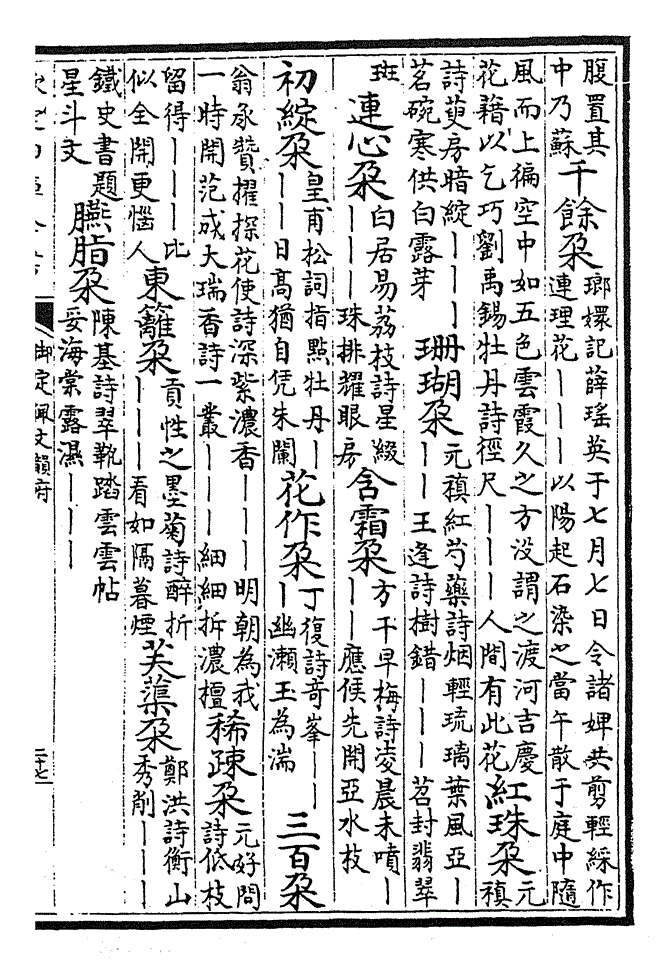 腹置其
中乃蘇
千餘朶
瑯嬛記薛瑤英于七月七日令諸婢共剪輕綵作
連理花———以陽起石染之當午散于庭中隨
風而上徧空中如五色雲霞久之方没謂之渡河吉慶
花藉以乞巧劉禹錫牡丹詩徑尺———人間有此花
紅珠朶
元
稹
詩萸房暗綻———
茗碗寒供白露芽
珊瑚朶
元稹紅芍藥詩烟輕琉璃葉風亞—
——王逢詩樹錯———苕封翡翠
斑
連心朶
白居易荔枝詩星綴
———珠排耀眼房
含霜朶
方干早梅詩凌晨未噴—
——應候先開亞水枝
初綻朶
皇甫松詞指點牡丹—
——日高猶自凭朱闌
花作朶
丁復詩竒峯——
—幽瀨玉為湍
三百朶
翁承贊擢探花使詩深紫濃香———明朝為我
一時開范成大瑞香詩一叢———細細拆濃檀
稀疎朶
元好問
詩低枝
留得———比
似全開更惱人
東籬朶
貢性之墨菊詩醉折
———看如隔暮煙
芙蕖朶
鄭洪詩衡山
秀削———
鐵史書題
星斗文
臙脂朶
陳基詩翠靴踏雲雲帖
妥海棠露濕———
欽定四庫全書
御定佩文韻府
二十七